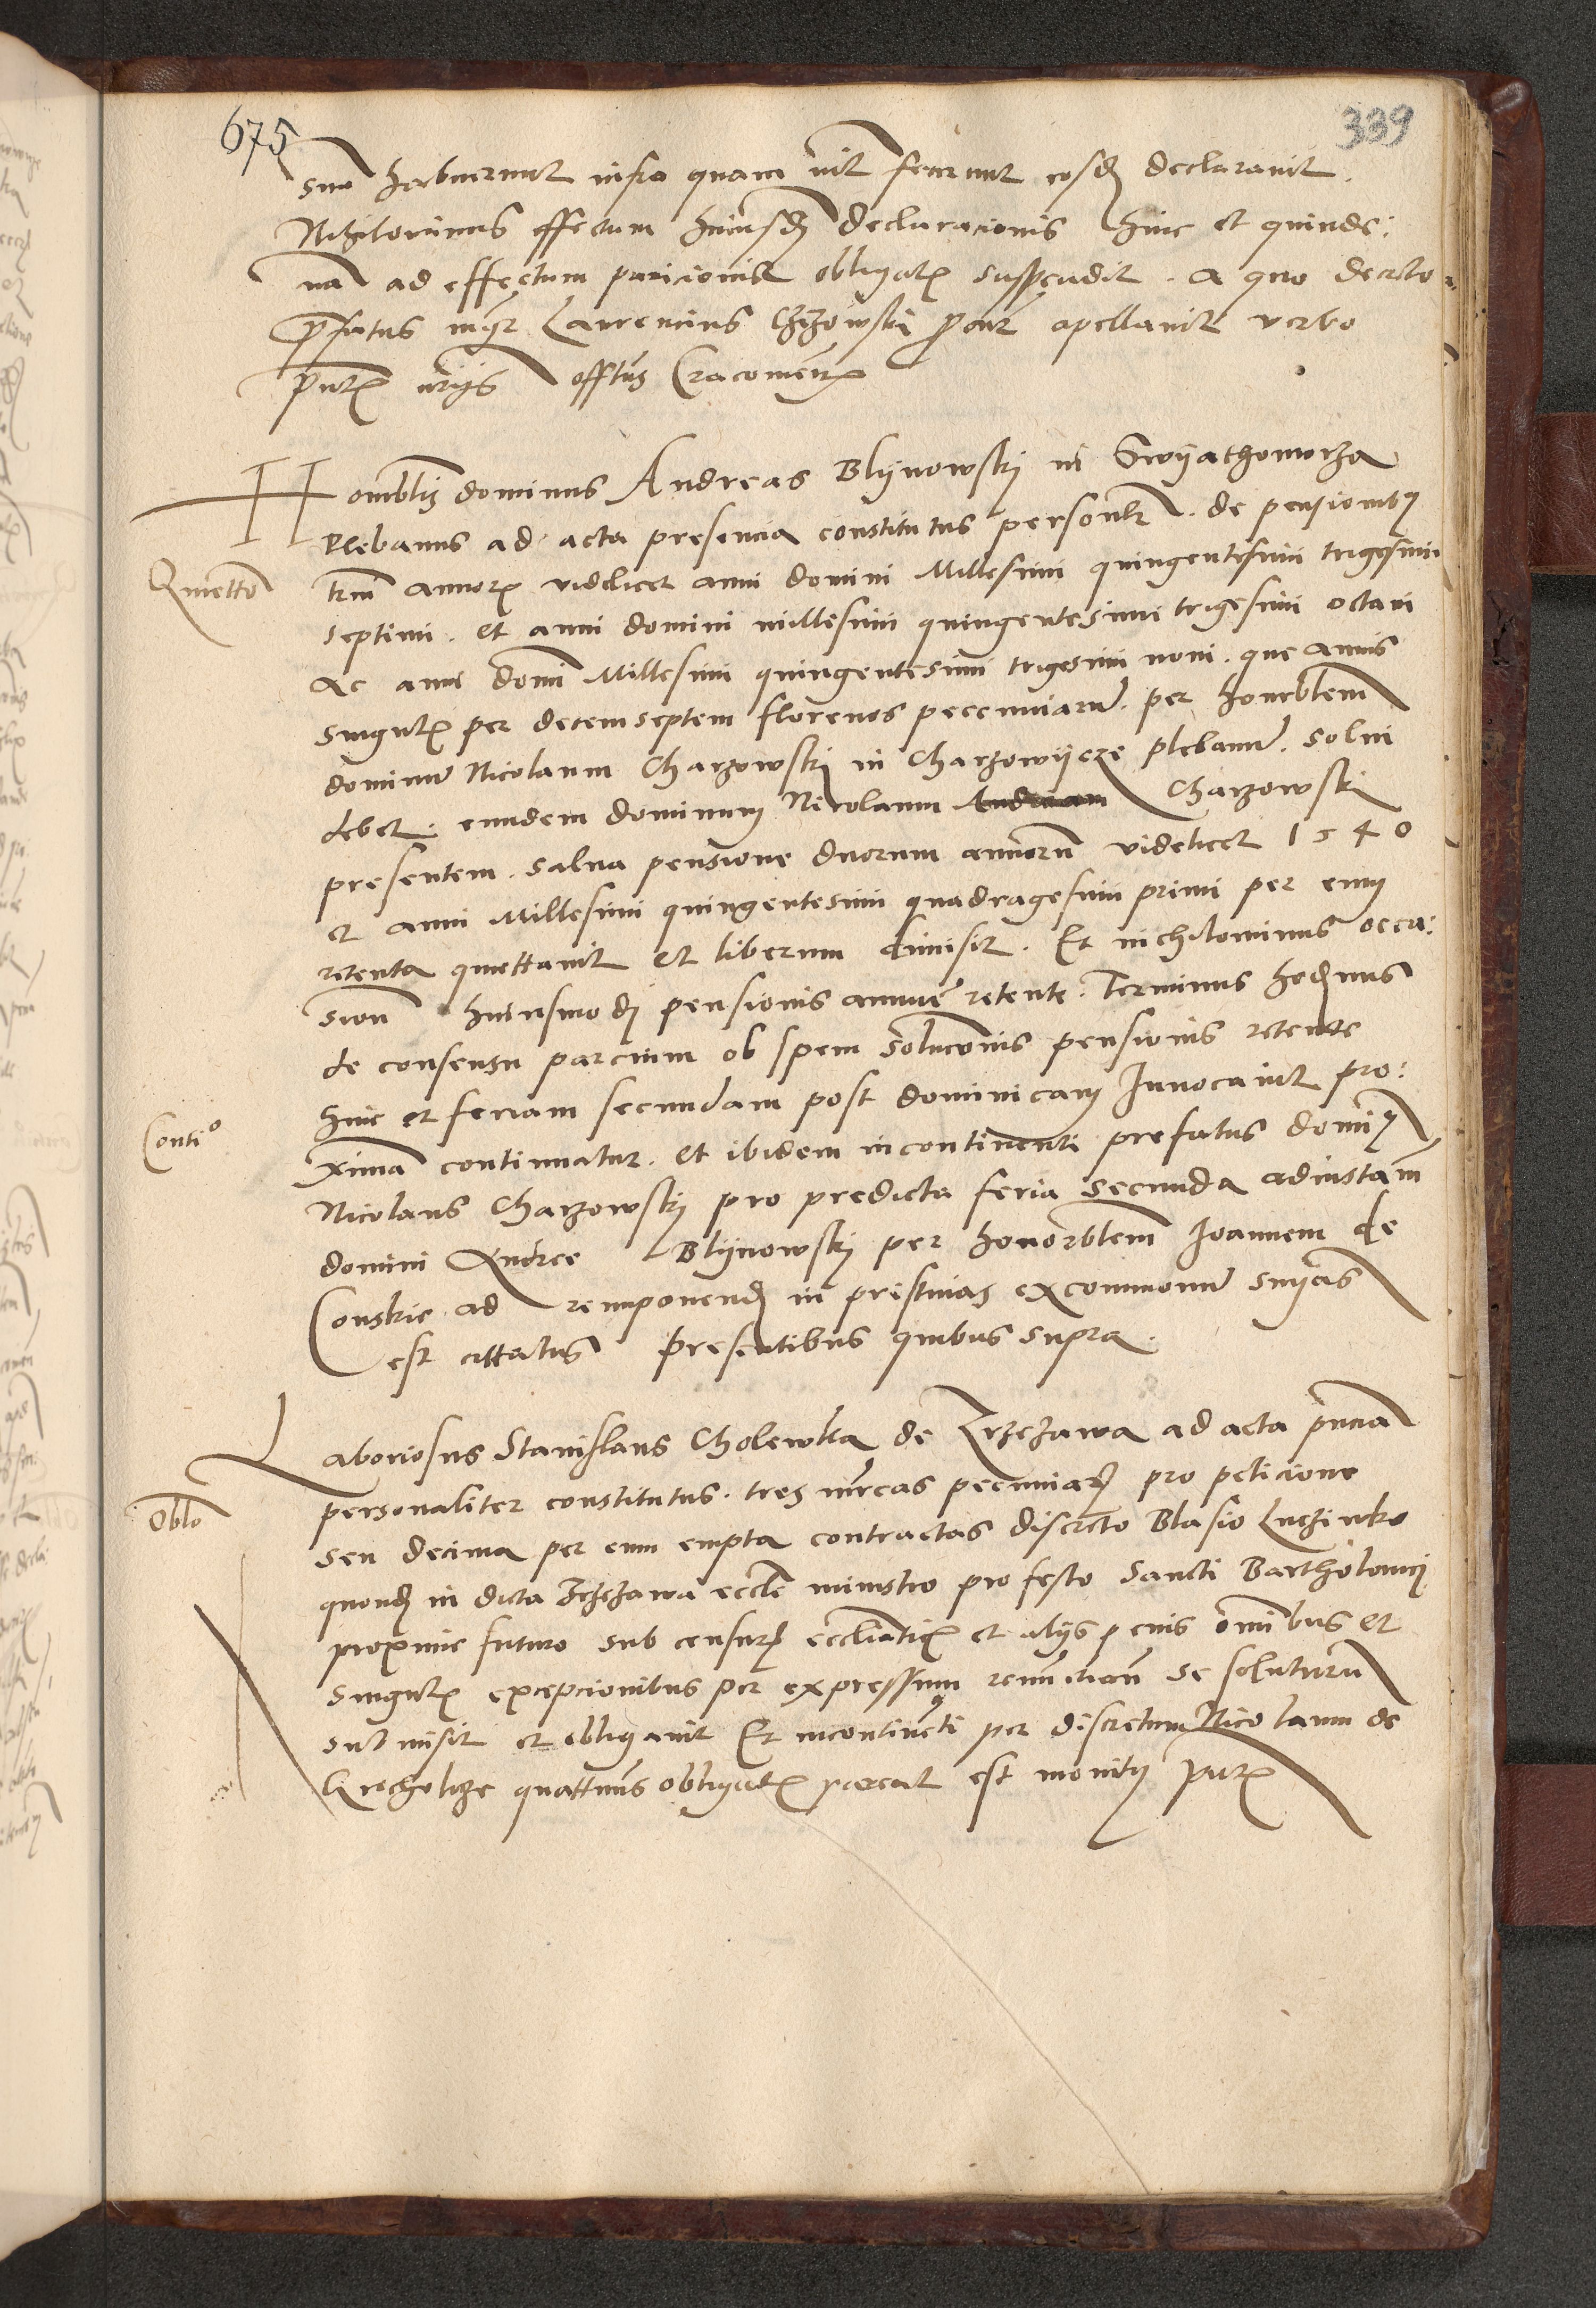 675
339
suo habuerunt infra quam nil fecerunt eosdem declaravit.
Nihilominus effectum huiusdi declaracionis hinc et quinde:
nam ad effectum paricionis obligatr suspendit. a quo decreto
pfatus mgr Laurencius Chizowski pcur apellavit verbo
pntr Officius Cracoviens
Honorablis dominus Andreas Blijnowskj in Swijathomirza
Plebanus ad acta presencia constitutus personlr. de pensionibus
Quietto
trium annorum videlicet anni domini Millesimi quingentesimi trigesimi
septimi. et anni domini millesimi quingentesimi trigesimi octavi
Ac anni domi Millesimi quingentesimi trigesimi noni. que annis
singulis per decemseptem florenos peccuniarum. per honorablem
dominum Nicolaum Charzowskj in Charzowijcze plebanum. solvi
debet. eundem dominum Nicolaum Andream Charzowskj
presentem. salva pensione duorum annorum videlicet 1540
et anni Millesimi quingentesimi quadragesimi primi per eum
retenta quiettavit et liberum dimisit. Et nichilominus occa:
sion huiusmodj pensionis annue retente. Terminus hodiernus
de consensu parcium ob spem solucionis pensionis retente
Contio
hinc et feriam secundam post dominicam Invocavit pro:
ximam continuatur. et ibidem incontinenti prefatus dominus
Nicolaus Charzowskj pro predicta feria secunda ad instam
domini Andree Blijnowskj per honorablem Joannem de
Conskie ad reimponendum in pristinas excommunicm snias
est cittatus presentibus quibus supra.
Laboriosus Stanislaus Cholewka de Krzczawa ad acta pncia
personaliter constitutus. tres mrcas pecuniarum pro peticione
Oblo
seu decima per eum empta contractas discreto Blasio
quondam in dicta eccle ministro pro festo Sancti Bartholomei
proxime futuro sub censuris eccliasticis et alijs penis omibus et
singulis excepcionibus per expressum se soluturum
submisit et obligavit Et incontinenti per discretum Nicolaum de
quattenus obligatr pareat est monitus pntr